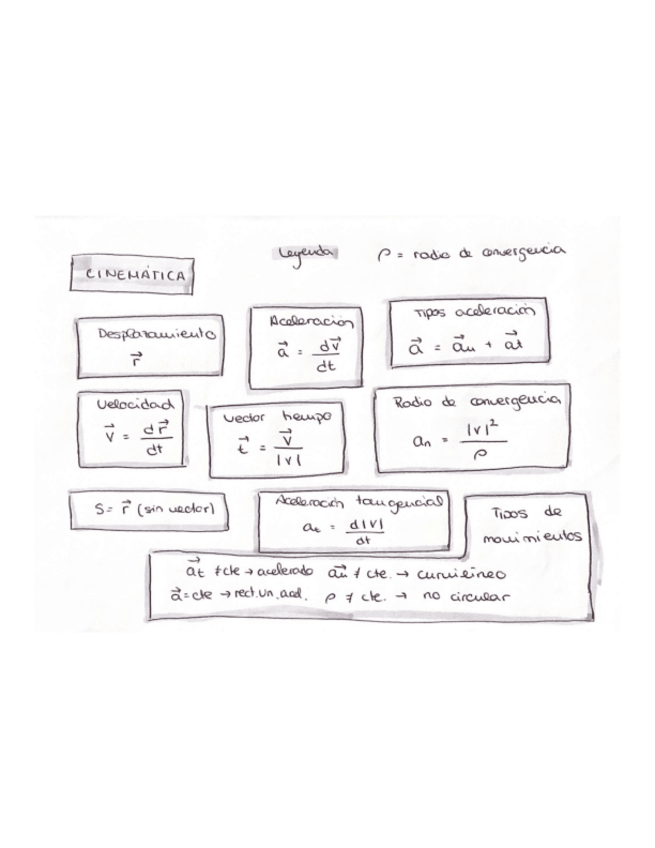 Leyenda
ρ = radio de convergencia
CINEMÁTICA
Desplazamiento
r⃗
Aceleración
a⃗ = dv⃗/dt
Tipos aceleración
a⃗ = a⃗n + a⃗t
Velocidad
v⃗ = dr⃗/dt
Vector tiempo
t⃗ = v⃗/|v|
Radio de convergencia
an = |v|²/ρ
S = r⃗ (sin vector)
Aceleración tangencial
at = d|v|/dt
Tipos de
movimientos
a⃗t ≠ cte → acelerado a⃗n ≠ cte. → curvilíneo
a⃗ = cte → rect. un. acel. ρ ≠ cte. → no circular